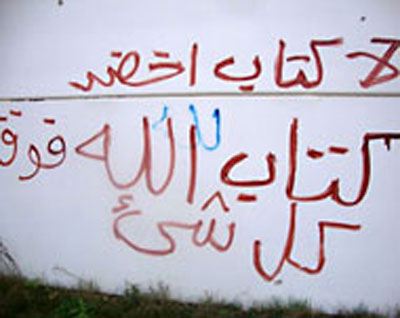 لا كتاب اخضر
كتاب الله فوق
كل شئ